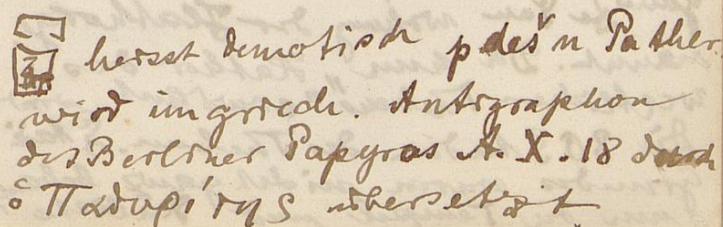 heisst demotisch pdeš n Pather
wird im griech. Antigraphon
des Berliner Papyrus A. X. 18 durch
ὁ Παθυρίτης übersetzt